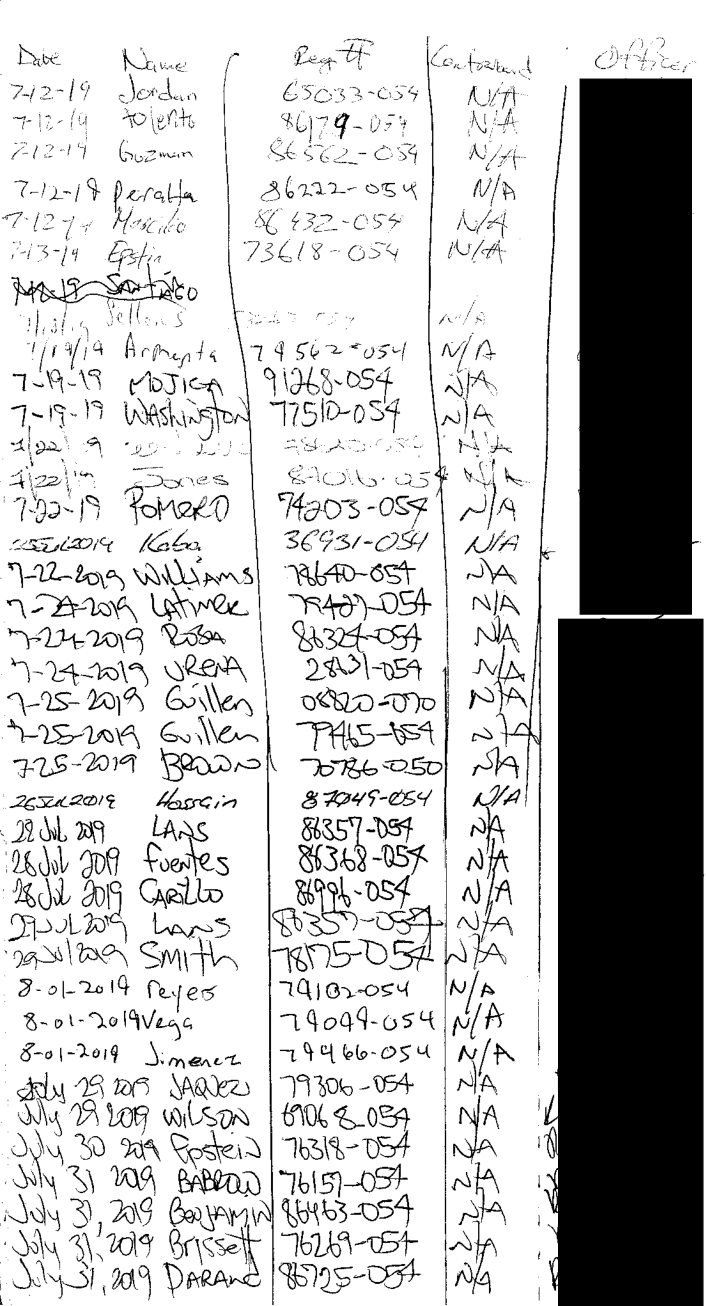 Date Name Reg # Contraband Officer
7-12-19 Jordan 65033-054 N/A
7-12-19 Tolento 86179-054 N/A
7-12-19 Guzman 86562-054 N/A
7-12-19 Peralta 86222-054 N/A
7-12-19 86432-054 N/A
7-13-19 Epstin 73618-054 N/A
SANTIAGO
Sellers N/A
7/19/19 Armenta 79562-054 N/A
7-19-19 MOJICA 91268-054 N/A
7-19-19 WAShiNgTON 77510-054 N/A
7/22/19 N/A
7/22/19 Jones 87016-054 N/A
7-22-19 ROMERO 74203-054 N/A
2019 Kaba 36931-054 N/A
7-22-2019 WilliAMS 78640-054 N/A
7-24-2019 LATIMER 79427-054 N/A
7-24-2019 ROSA 86324-054 N/A
7-24-2019 URENA 28631-054 N/A
7-25-2019 Guillen 08820-070 N/A
7-25-2019 Guillen 79465-054 N/A
7-25-2019 BROWN 70786-050 N/A
26JUL2019 Hossain 87049-054 N/A
28 Jul 2019 LANS 86357-054 N/A
28 Jul 2019 fuentes 86368-054 N/A
28 Jul 2019 CARILLO 86996-054 N/A
29 JUL 2019 LANS 86357-054 N/A
29 Jul 2019 SMITh 78175-054 N/A
8-01-2019 reyes 79102-054 N/A
8-01-2019 Vega 79099-054 N/A
8-01-2019 Jimenez 79466-054 N/A
July 29 2019 JAQUEZ 79306-054 N/A
July 29 2019 WILSON 69068-054 N/A
July 30 2019 Epstein 76318-054 N/A
July 31 2019 BABROW 76157-054 N/A
July 31, 2019 BENJAMIN 86463-054 N/A
July 31, 2019 Brissett 76269-054 N/A
July 31, 2019 DARAND 86725-054 N/A